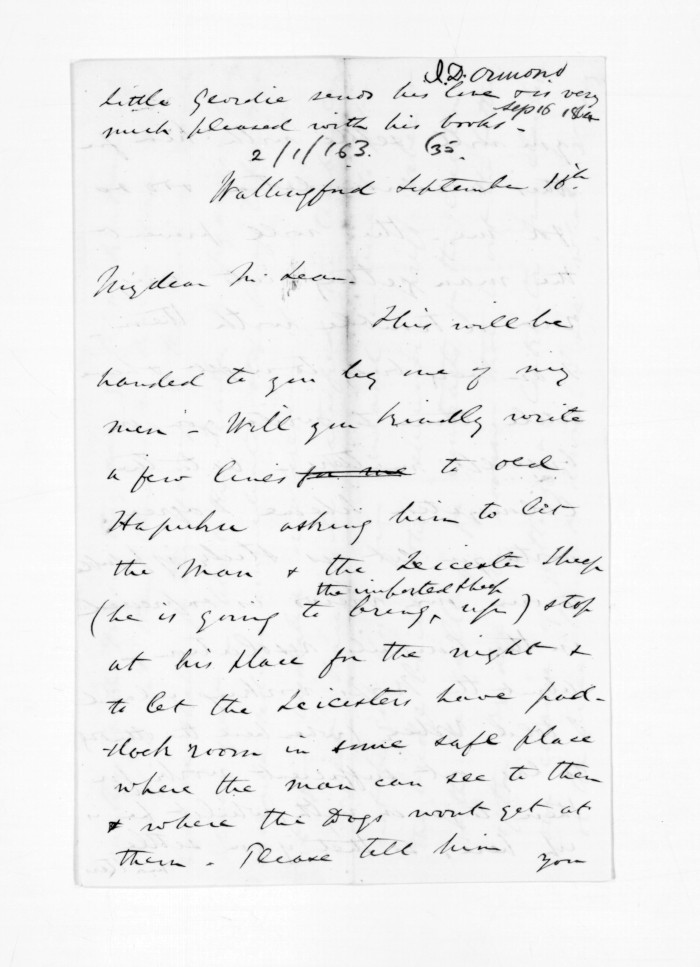 J. D. Ormond
little Geordie sends his love & is very
Sep 16 1864
much pleased with his books -
2/1/163. (35.
Wallingford September 16th
My dear McLean.
This will be
handed to you by one of my
men - Will you kindly write
a few lines for me to old
Hapuku asking him to let
the man & the Leicester Sheep
the imported sheep
(he is going to bring, up) stop
at his place for the night &
to let the Leicesters have pad-
-dock room in some safe place
where the man can see to them
& where the Dogs wont get at
them - Please tell him
you